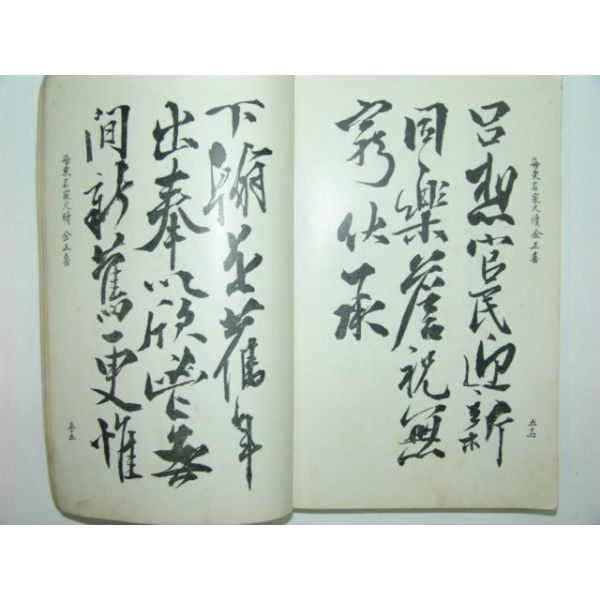 海東名家尺牘 金正喜
想官民迎新
同樂詹祝無
窮伏承
五十四
下翰是舊年
出奉以欣無
間新舊更惟
海東名家尺牘 金正喜
五十五